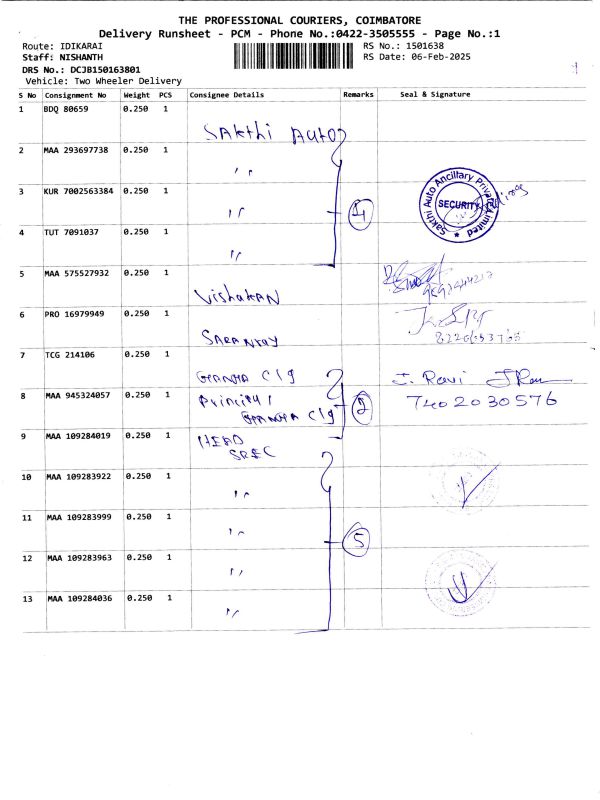 THE PROFESSIONAL COURIERS, COIMBATORE
Delivery Runsheet - PCM - Phone No.:0422-3505555 - Page No.:1
Route: IDIKARAI
RS No.: 1501638
Staff: NISHANTH
RS Date: 06-Feb-2025
DRS No.: DCJB150163801
Vehicle: Two Wheeler Delivery
S No Consignment No Weight PCS Consignee Details Remarks Seal & Signature
1 BDQ 80659 0.250 1 Sakthi Auto
2 MAA 293697738 0.250 1 "
3 KUR 7002563384 0.250 1 " 4
Sakthi Auto Ancillary Private Limited
SECURITY
4 TUT 7091037 0.250 1 "
5 MAA 575527932 0.250 1 Vishakan
6 PRO 16979949 0.250 1 Saranyay
8220653765
7 TCG 214106 0.250 1 Ganga Clg
J. Ravi
8 MAA 945324057 0.250 1 Principal Ganga Clg 2
7402030576
9 MAA 109284019 0.250 1 HEAD SREC
10 MAA 109283922 0.250 1 "
11 MAA 109283999 0.250 1 " 5
12 MAA 109283963 0.250 1 "
13 MAA 109284036 0.250 1 "